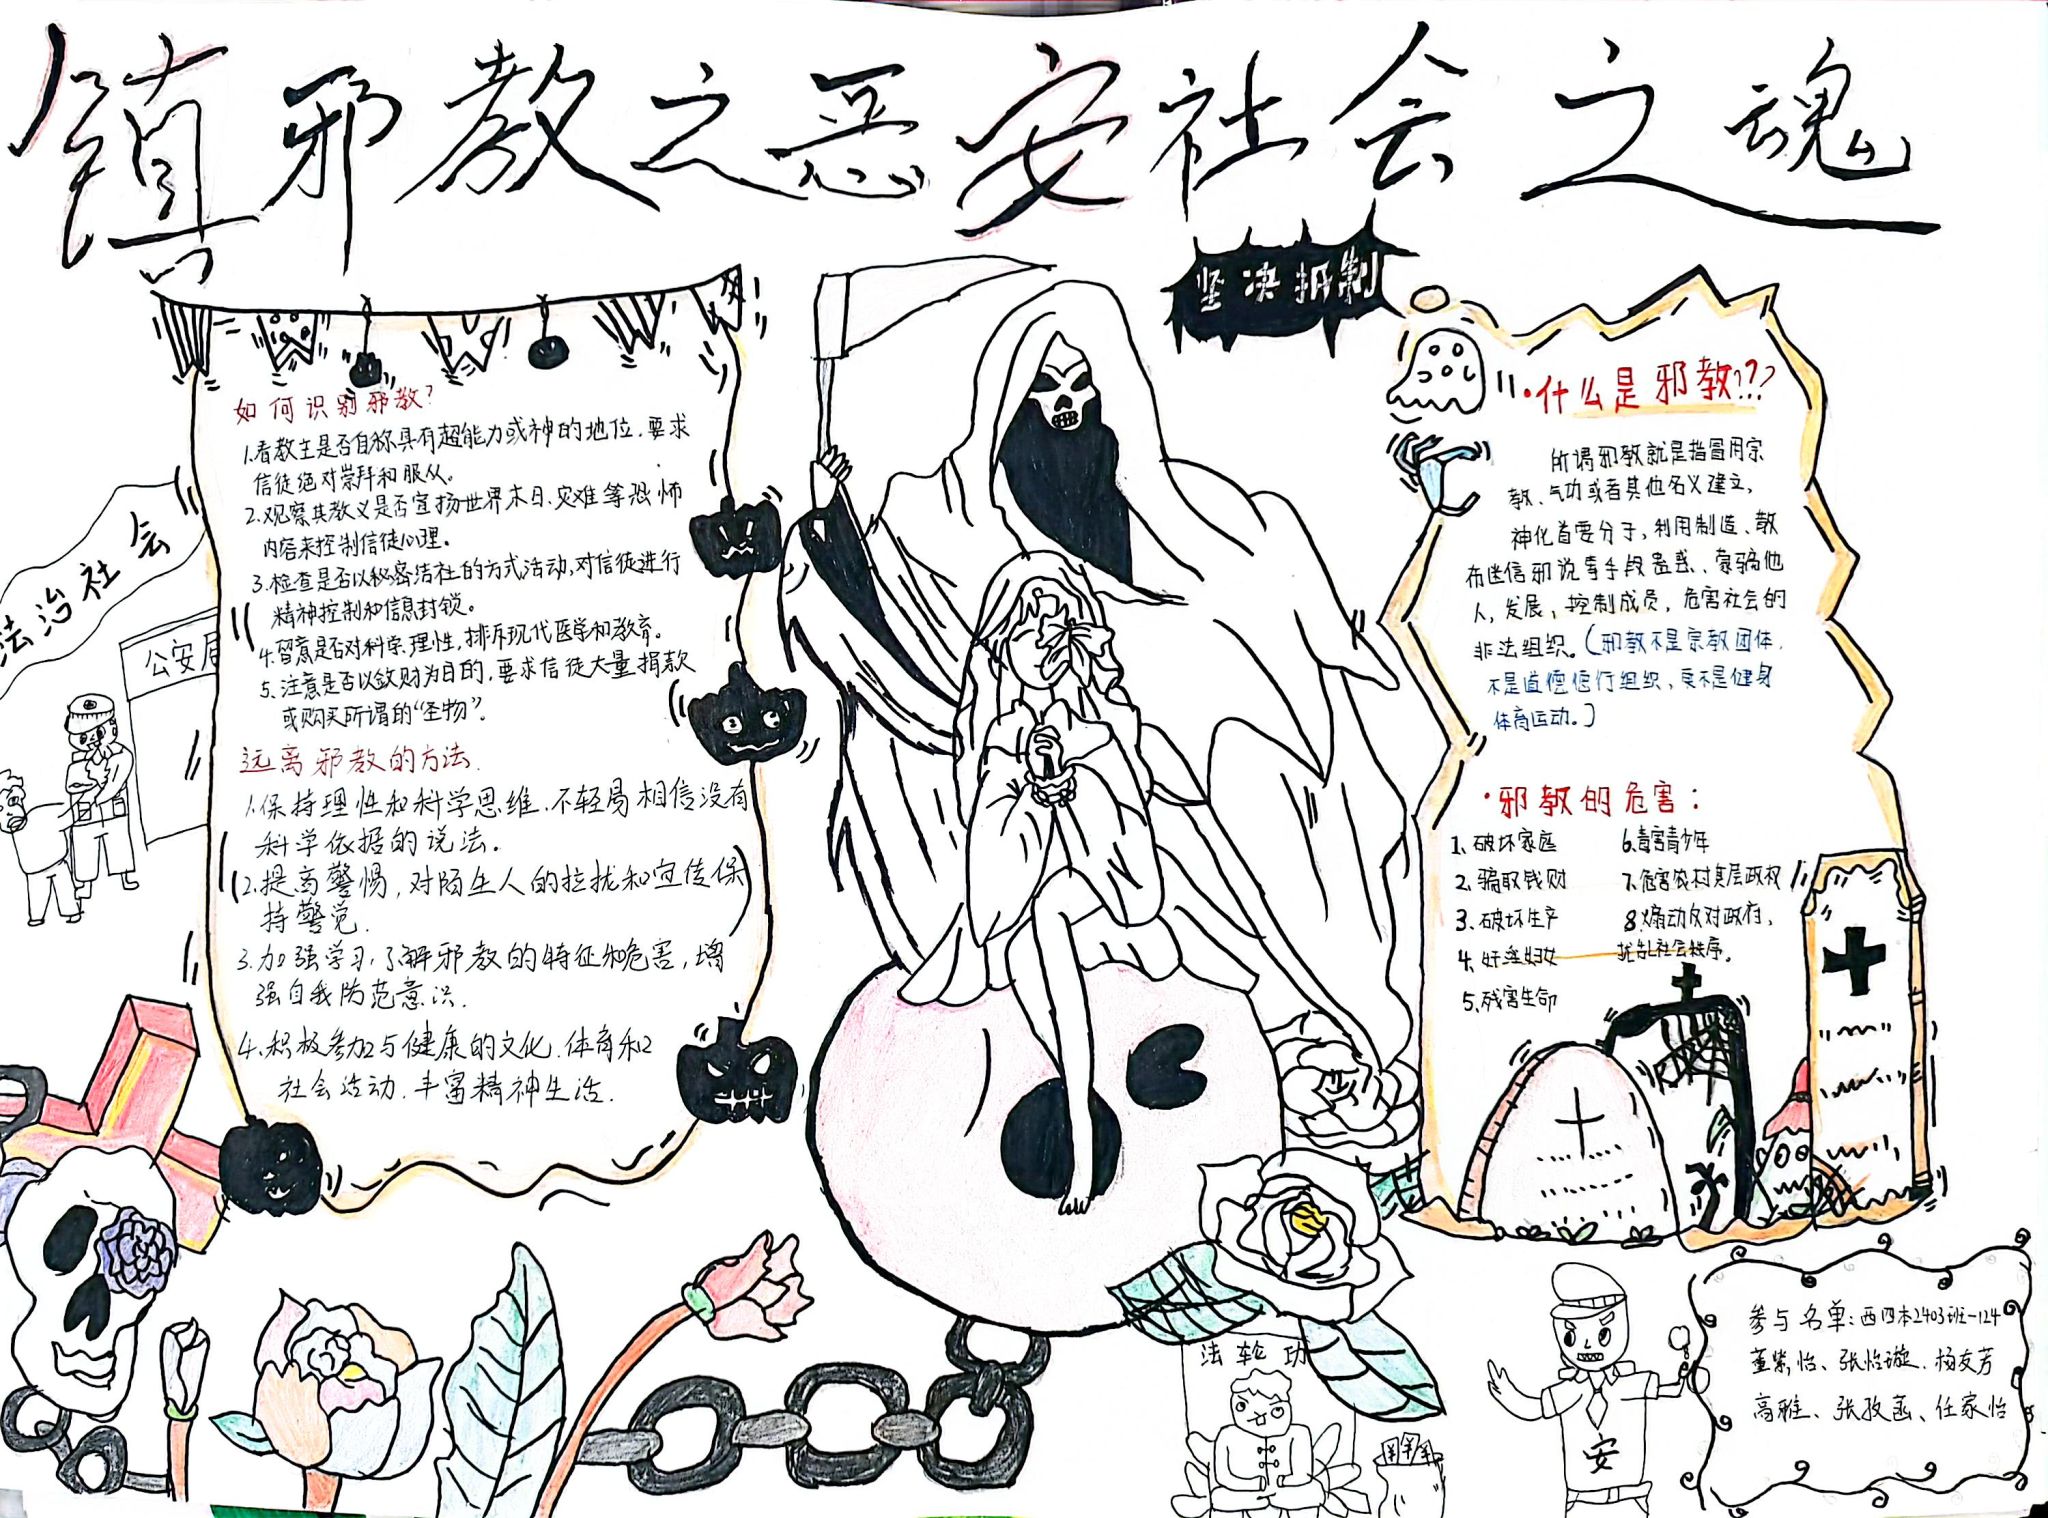 镇邪教之恶安社会之魂
坚决抵制
法治社会
公安局
如何识别邪教?
1.看教主是否自称具有超能力或神的地位.要求
信徒绝对崇拜和服从。
2.观察其教义是否宣扬世界末日、灾难等恐怖
内容来控制信徒心理。
3.检查是否以秘密结社的方式活动,对信徒进行
精神控制和信息封锁。
4.留意是否对科学.理性,排斥现代医学和教育。
5.注意是否以敛财为目的,要求信徒大量捐款
或购买所谓的“圣物”。
远离邪教的方法.
1.保持理性和科学思维.不轻易相信没有
科学依据的说法。
2.提高警惕,对陌生人的拉拢和宣传保
持警觉.
3.加强学习,了解邪教的特征和危害,增
强自我防范意识.
4.积极参加与健康的文化.体育和
社会活动.丰富精神生活.
·什么是邪教???
所谓邪教就是指冒用宗
教、气功或者其他名义建立,
神化首要分子,利用制造、散
布迷信邪说等手段蛊惑、蒙骗他
人,发展,控制成员,危害社会的
非法组织。(邪教不是宗教团体.
不是道德修行组织,更不是健身
体育运动。)
·邪教的危害:
1、破坏家庭
2、骗取钱财
3、破坏生产
4、奸淫妇女
5、残害生命
6.毒害青少年
7.危害农村基层政权
8.煽动反对政府,
扰乱社会秩序。
法轮功
安
参与名单:西四本2403班-124
董紫怡、张怡璇.杨友芳
高雅、张孜菡、任家怡